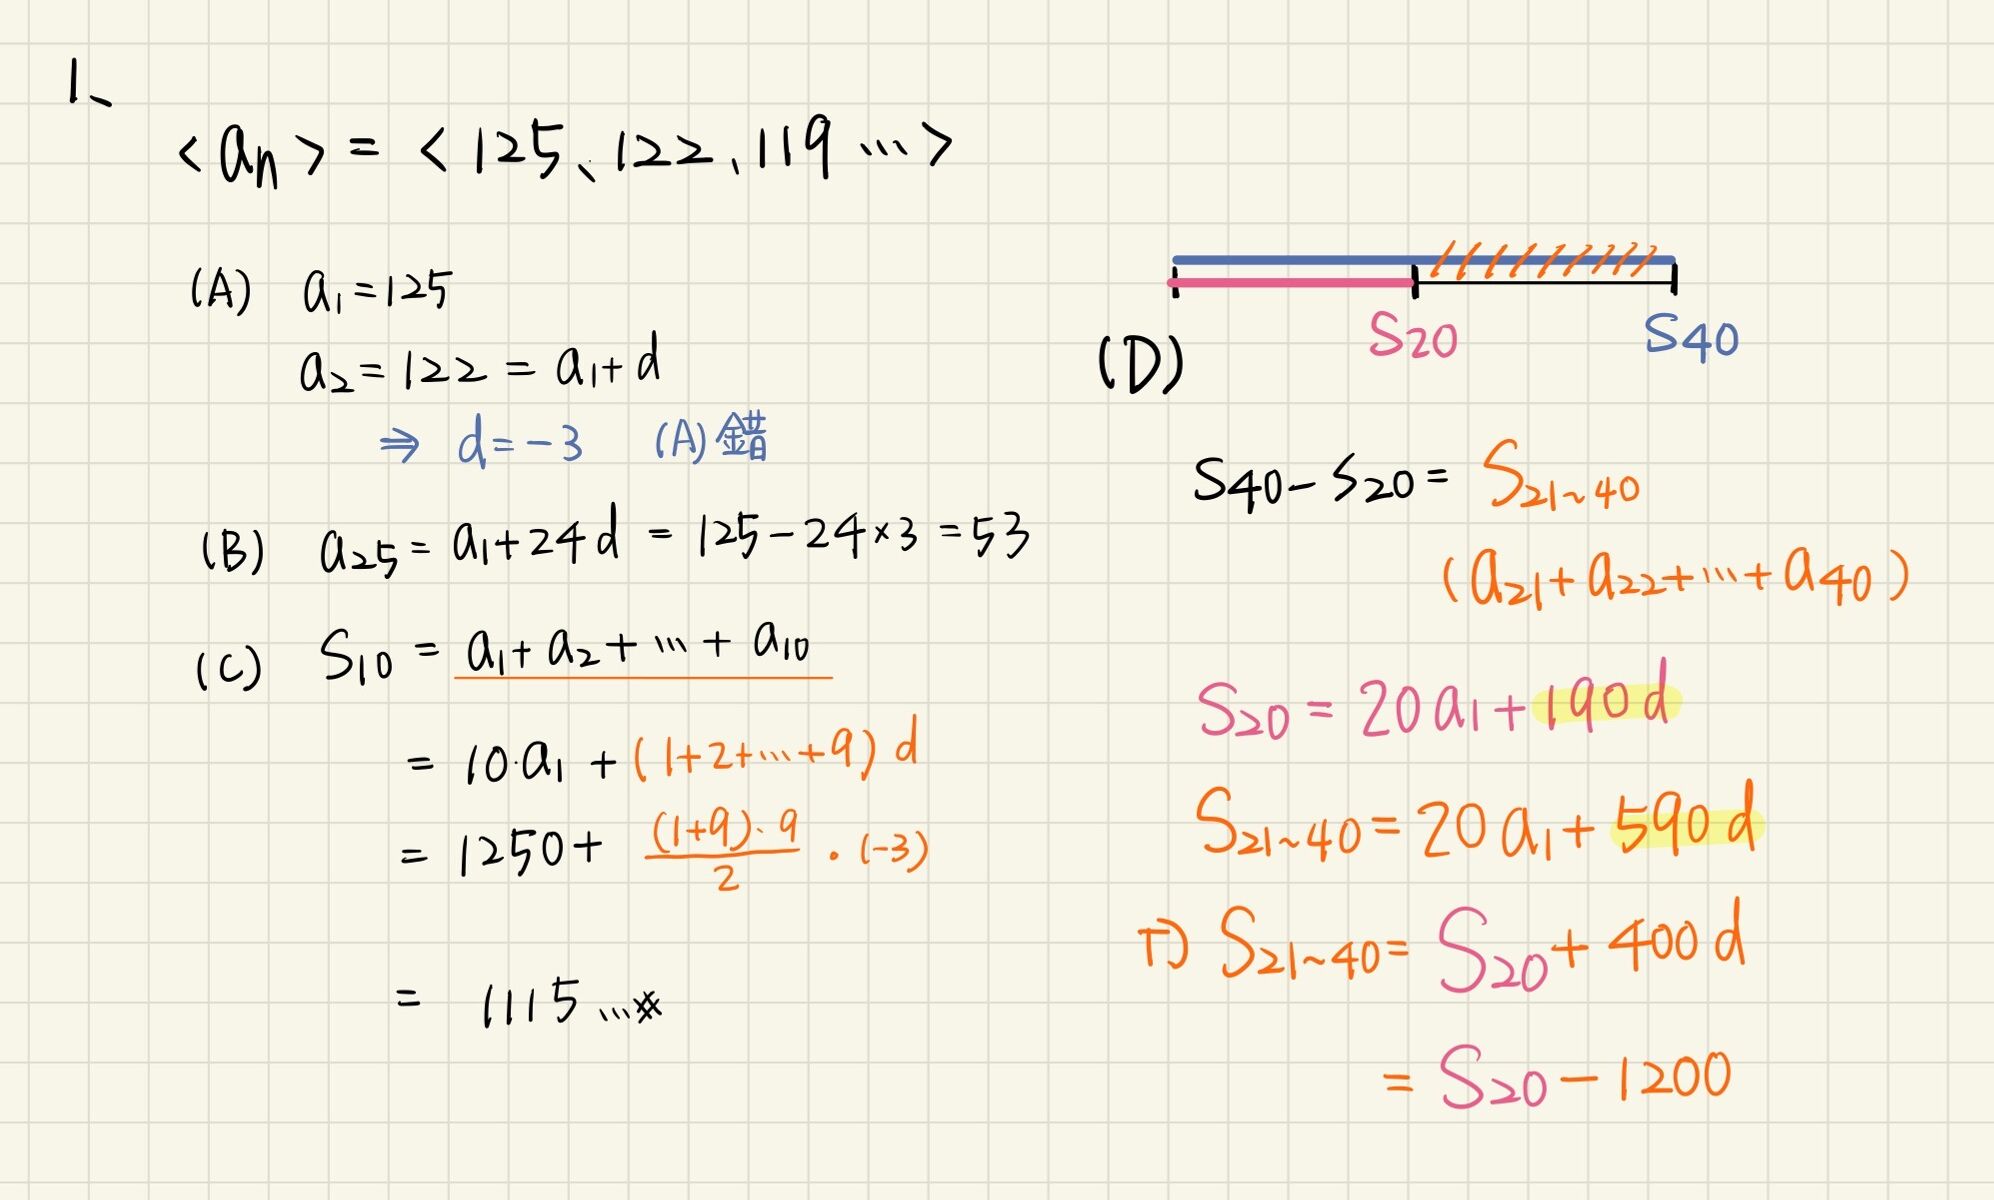 1、
<an> = < 125、122、119 … >
(A) a1 = 125
a2 = 122 = a1 + d
⇒ d = -3 (A)錯
(B) a25 = a1 + 24d = 125 - 24×3 = 53
(C) S10 = a1 + a2 + … + a10
= 10·a1 + (1+2+…+9) d
= 1250 + (1+9)·9/2 · (-3)
= 1115 …※
S20 S40
(D)
S40 - S20 = S21~40
(a21 + a22 + … + a40)
S20 = 20a1 + 190d
S21~40 = 20a1 + 590d
S21~40 = S20 + 400d
= S20 - 1200